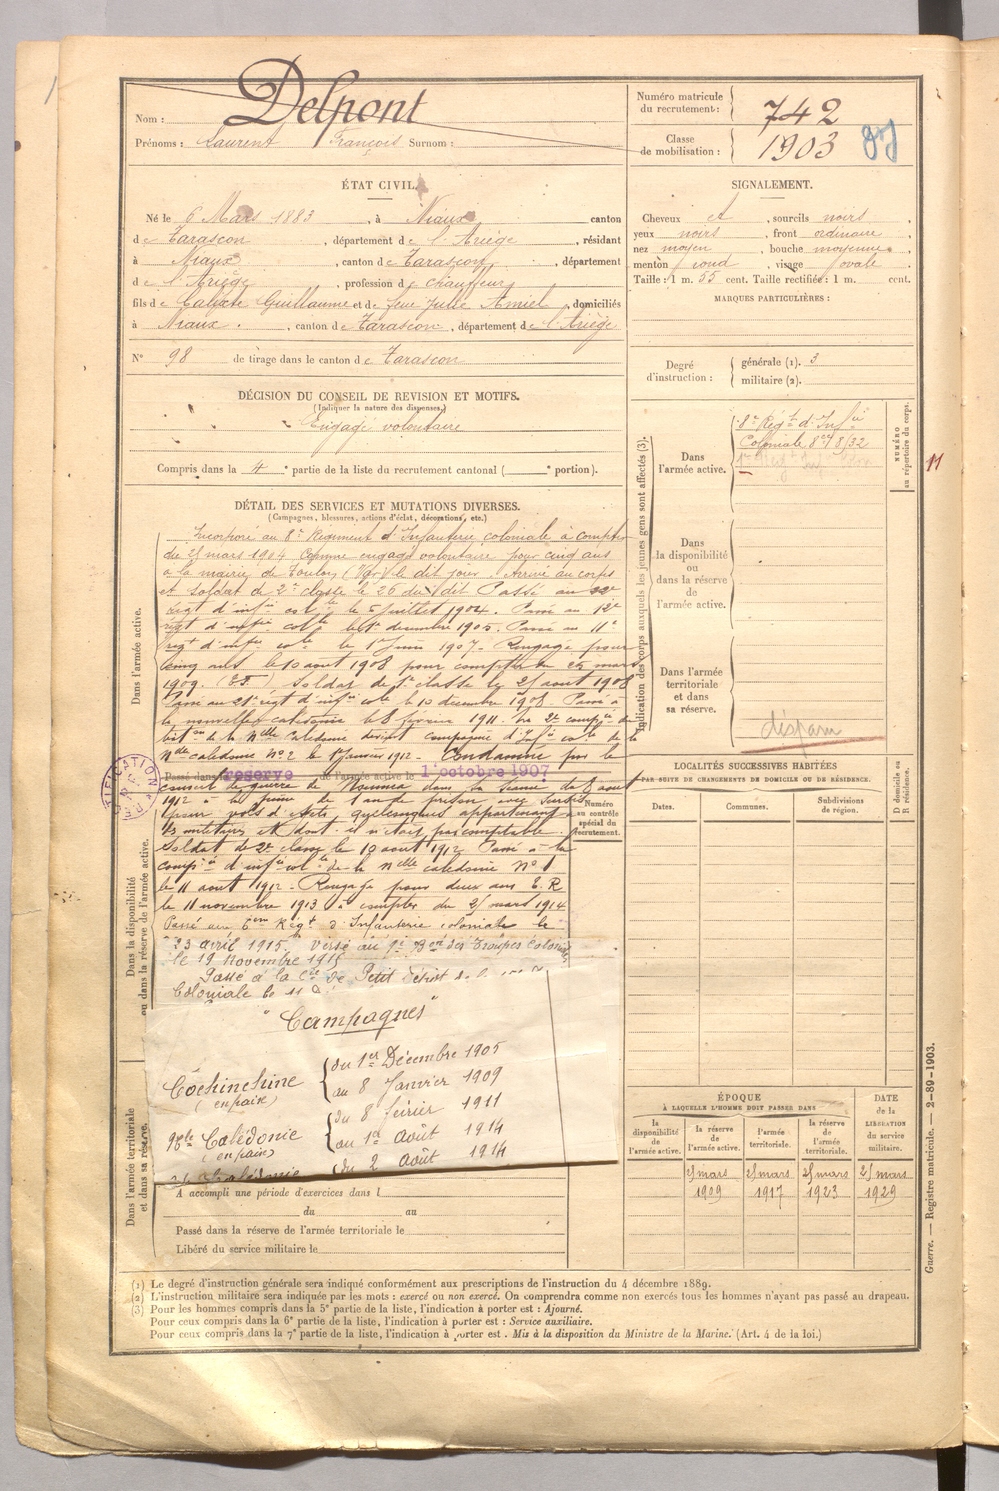 Nom : Delpont
Prénoms : Laurent François Surnom :
Numéro matricule du recrutement : 742
Classe de mobilisation : 1903
87
ÉTAT CIVIL.
Né le 6 Mars 1883, à Niaux canton
de Tarascon, département de l'Ariège, résidant
à Niaux, canton de Tarascon, département
de l'Ariège, profession de chauffeur
fils de Calixte Guillaume et de feue Julie Amiel, domiciliés
à Niaux, canton de Tarascon, département de l'Ariège
N° 98 de tirage dans le canton de Tarascon
SIGNALEMENT.
Cheveux et, sourcils noirs,
yeux noirs, front ordinaire,
nez moyen, bouche moyenne,
menton rond, visage ovale
Taille : 1 m. 55 cent. Taille rectifiée : 1 m. cent.
MARQUES PARTICULIÈRES :
Degré d'instruction : générale (1). 3
militaire (2).
DÉCISION DU CONSEIL DE REVISION ET MOTIFS.
(Indiquer la nature des dispenses.)
Engagé volontaire
Compris dans la 4e partie de la liste du recrutement cantonal ( portion).
DÉTAIL DES SERVICES ET MUTATIONS DIVERSES.
(Campagnes, blessures, actions d'éclat, décorations, etc.)
Dans l'armée active.
Incorporé au 8e Régiment d'Infanterie coloniale à compter
du 25 mars 1904 Comme engagé volontaire pour cinq ans
à la mairie de Toulon (Var) le dit jour. Arrivé au corps
et soldat de 2e classe le 26 du dit Passé au 22e
régt d'infie colle le 5 juillet 1904. Passé au 12e
régt d'infie colle le 1er décembre 1905. Passé au 11e
régt d'infie colle le 1er Juin 1907. Rengagé pour
cinq ans le 10 aout 1908 pour compter du 25 mars
1909. Soldat de 1e classe le 21 aout 1908
Passé au 21e régt d'infie colle le 10 decembre 1908 Passé à
la nouvelle calédonie le 8 février 1911. La 2e compie du
baton de la Nlle Calédonie devient compagnie d'Infie colle de la
Nlle calédonie No 2 le 1er Janvier 1912. Condamné par le
Passé dans réserve de l'armée active le 1 octobre 1907
conseil de guerre de Noumea dans sa séance du 8 aout
1912 à la peine de 1 an de prison avec sursis
pour vols d'effets quelconques appartenant à
des militaires et dont il n'était pas comptable.
Soldat de 2e classe le 10 aout 1912 Passé à la
compie d'infie colle de la Nlle calédonie No 1
le 11 aout 1912 - Rengagé pour deux ans E.R
le 11 novembre 1913 à compter du 25 mars 1914
Passé au 6em Régt d'Infanterie coloniale le
23 avril 1915. Versé au Bon des Troupes Coloniales
le 19 Novembre 1915
Passé à la Cie de Petit Dépôt de
Coloniale le 11
"Campagnes"
Cochinchine (en paix) { du 1er Décembre 1905
au 8 Janvier 1909
Nlle Calédonie (en paix) { du 8 février 1911
au 1er Août 1914
Calédonie (du 2 Août 1914
Numéro au contrôle spécial du recrutement.
Dans la disponibilité ou dans la réserve de l'armée active.
Dans l'armée territoriale et dans sa réserve.
A accompli une période d'exercices dans l
du au
Passé dans la réserve de l'armée territoriale le
Libéré du service militaire le
Indication des corps auxquels les jeunes gens sont affectés (3).
Dans l'armée active.
8e Régt d'Infie
Coloniale 8e/ 8/32
NUMÉRO au répertoire du corps.
11
Dans la disponibilité ou dans la réserve de l'armée active.
Dans l'armée territoriale et dans sa réserve.
disparu
LOCALITÉS SUCCESSIVES HABITÉES
PAR SUITE DE CHANGEMENTS DE DOMICILE OU DE RÉSIDENCE.
Dates. Communes. Subdivisions de région. D domicile ou R résidence.
ÉPOQUE
À LAQUELLE L'HOMME DOIT PASSER DANS
la disponibilité de l'armée active. la réserve de l'armée active. l'armée territoriale. la réserve de l'armée territoriale. DATE de la LIBÉRATION du service militaire.
25 mars 25 mars 25 mars 25 mars
1909 1917 1923 1929
(1) Le degré d'instruction générale sera indiqué conformément aux prescriptions de l'instruction du 4 décembre 1889.
(2) L'instruction militaire sera indiquée par les mots : exercé ou non exercé. On comprendra comme non exercés tous les hommes n'ayant pas passé au drapeau.
(3) Pour les hommes compris dans la 5e partie de la liste, l'indication à porter est : Ajourné.
Pour ceux compris dans la 6e partie de la liste, l'indication à porter est : Service auxiliaire.
Pour ceux compris dans la 7e partie de la liste, l'indication à porter est : Mis à la disposition du Ministre de la Marine. (Art. 4 de la loi.)
Guerre. — Registre matricule. — 2-89-1903.